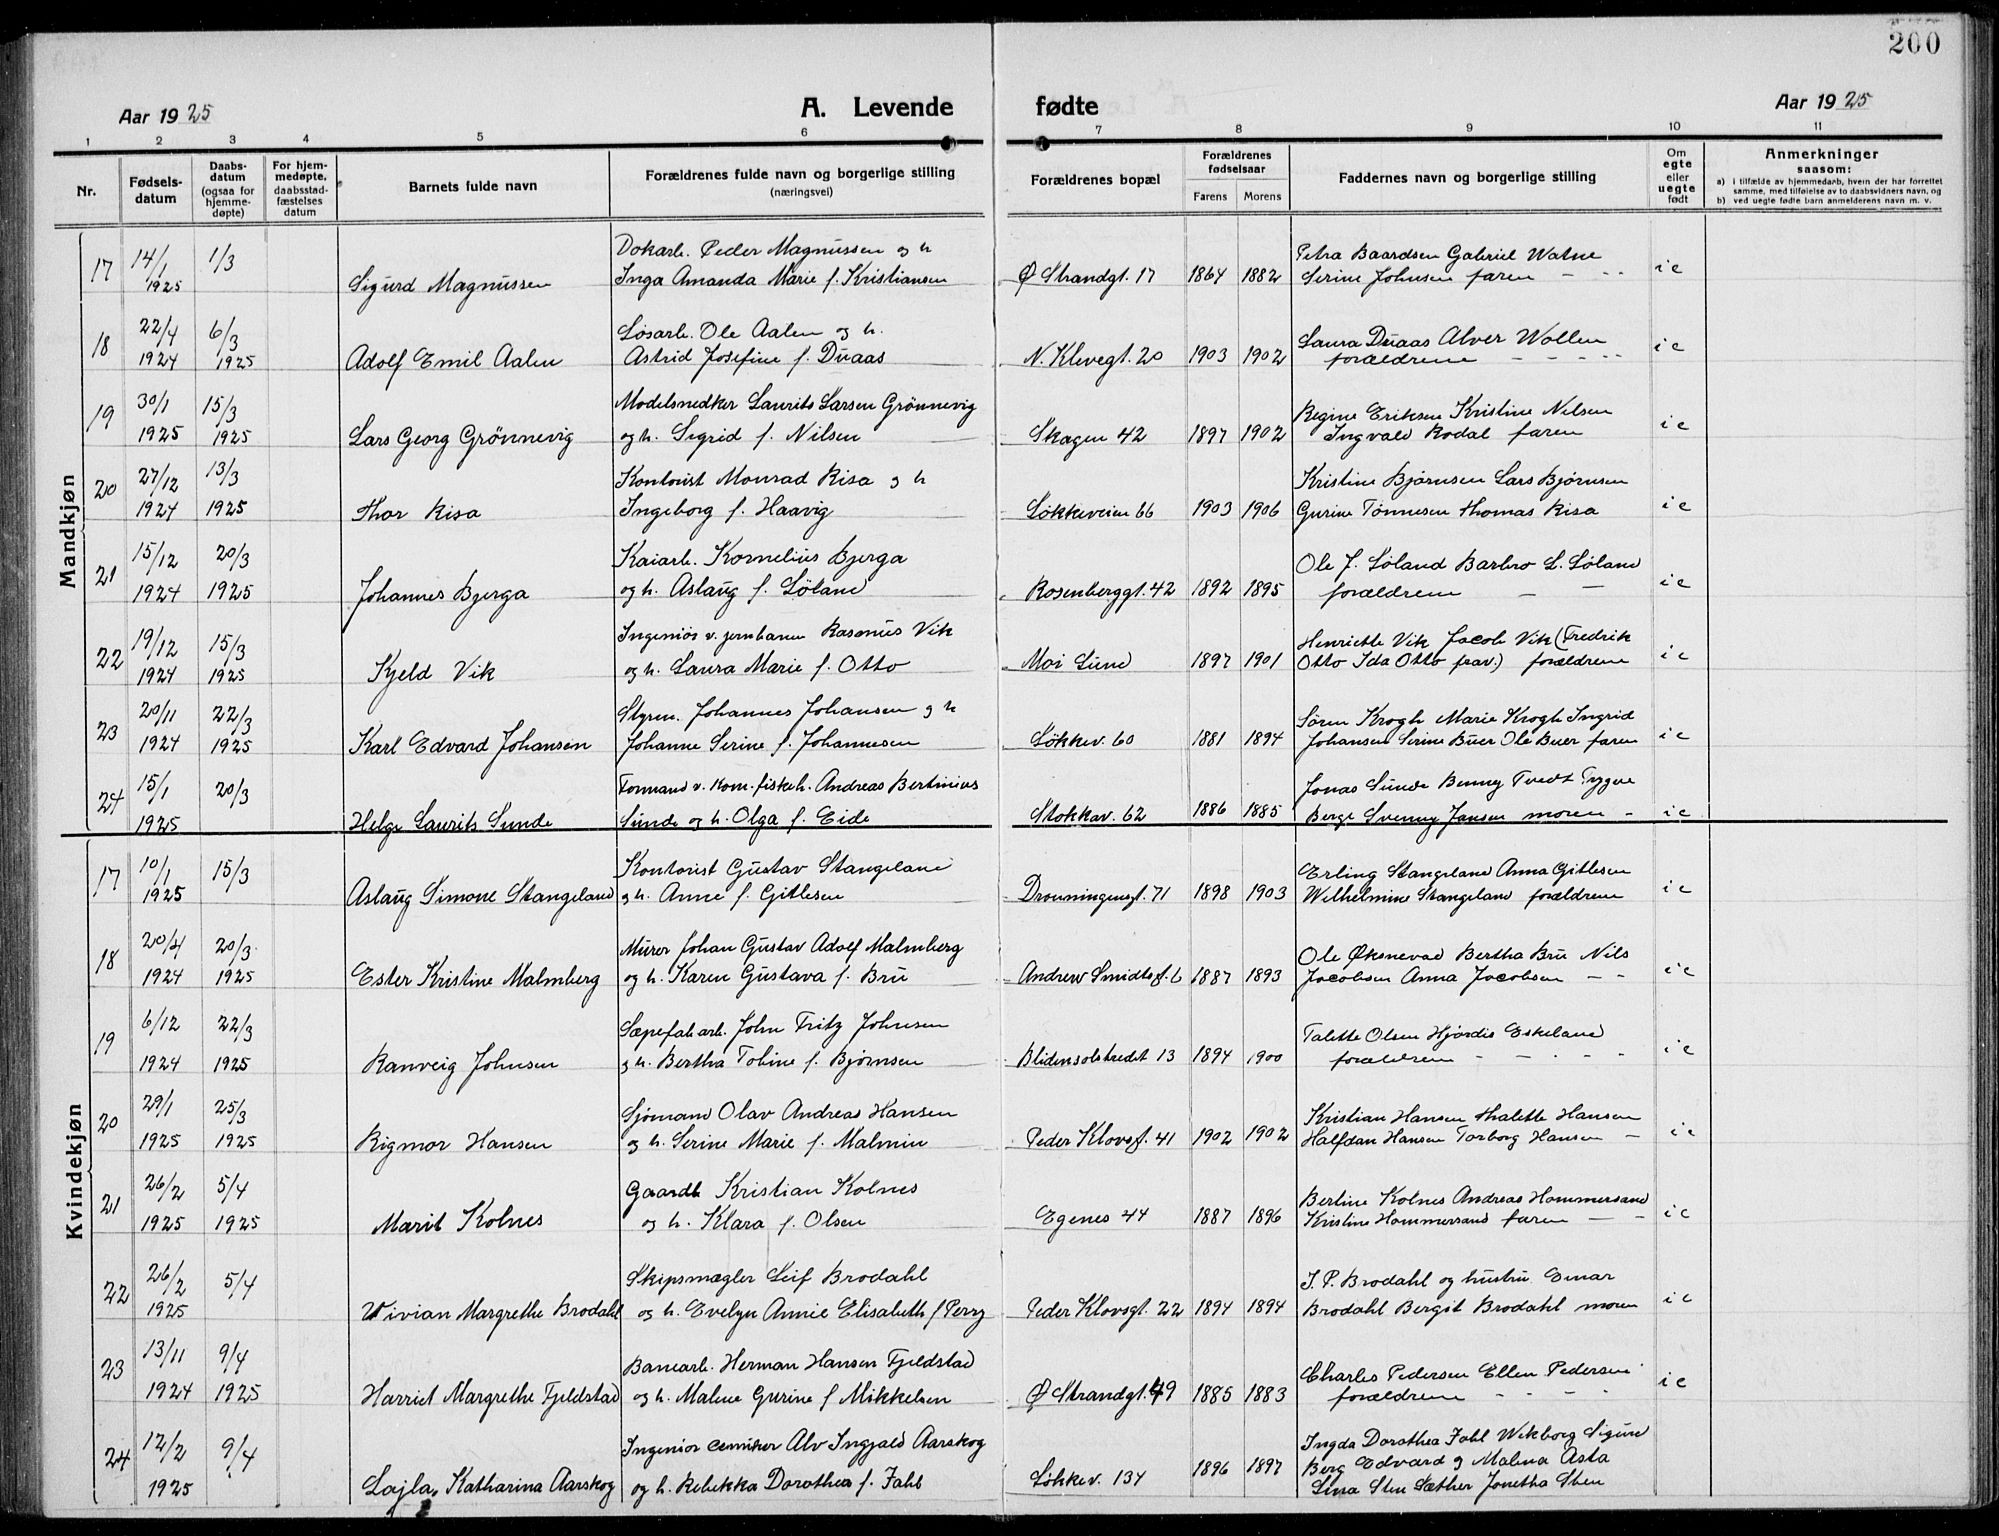 200
Aar 1925 A. Levende fødte Aar 1925
1 2 3 4 5 6 7 8 9 10 11
Nr. Fødsels-datum Daabs-datum (ogsaa for hjemme-døpte) For hjem-medøpte, daabsstad-fæstelses datum Barnets fulde navn Forældrenes fulde navn og borgerlige stilling (næringsvei) Forældrenes bopæl Forældrenes fødselsaar Farens Morens Faddernes navn og borgerlige stilling Om egte eller uegte født Anmerkninger saasom:
a) i tilfælde av hjemmedaab, hvem der har forrettet samme, med tilføielse av to daabsvidners navn, og
b) ved uegte fødte barn anmelderens navn m. v.
Mandkjøn
14/1 1/3 Dokarb. Peder Magnussen og h Petra Baardsen Gabriel Watne
17 1925 Sigurd Magnussen Inga Amanda Marie f. Kristiansen Ø Strandgt. 17 1864 1882 Serine Johnsen faren — i e
22/4 6/3 Løsarb. Ole Aalen og h. Laura Duaas Alver Wollen
18 1924 1925 Adolf Emil Aalen Astrid Josefine f. Duaas N. Klevegt. 20 1903 1902 forældrene — i e
30/1 15/3 Modelsnedker Laurits Larsen Grönnevig Regine Eriksen Kristine Nilsen
19 1925 1925 Lars Georg Grönnevig og h. Sigrid f. Nilsen Skagen 42 1897 1902 Ingvald Rodal faren i e
27/12 13/3 Kontorist Monrad Risa og h Kristine Bjørnsen Lars Bjørnsen
20 1924 1925 Thor Risa Ingeborg f. Haavig Løkkeveien 66 1903 1906 Gurine Tønnesen Thomas Risa i e
15/12 20/3 Kaiarb. Kornelius Bjerga Ole J. Søland Barbro L. Søland
21 1924 1925 Johannes Bjerga og h. Aslaug f. Søland Rosenberggt. 42 1892 1895 forældrene — i e
19/12 15/3 Ingeniør v. jernbanen Rasmus Vik Henriette Vik Jacob Vik (Fredrik
22 1924 1925 Kjeld Vik og h. Laura Marie f. Otto Moi Lund 1897 1901 Otto Ida Otto frav.) forældrene i e
20/11 22/3 Styrm. Johannes Johansen og h Søren Krogh Marie Krogh Ingrid
23 1924 1925 Karl Edvard Johansen Johanne Serine f. Johannesen Løkkev. 60 1881 1894 Johansen Serine Buer Ole Buer faren i e
15/1 20/3 Formand v. kom. fiskeh. Andreas Bertinius Jonas Sunde Benny Tvedt Trygve
24 1925 Helge Laurits Sunde Sunde og h. Olga f. Eide Stokkav. 62 1886 1885 Berge Svenny Jansen moren - i e
Kvindekjøn
10/1 15/3 Kontorist Gustav Stangeland Erling Stangeland Anna Gitlesen
17 1925 Aslaug Simone Stangeland og h. Anne f. Gitlesen Dronningensgt. 71 1898 1903 Wilhelmine Stangeland forældrene i e
20/4 20/3 Murer Johan Gustav Adolf Malmberg Ole Øksnevad Bertha Bru Nils
18 1924 1925 Ester Kristine Malmberg og h. Karen Gustava f. Bru Andrew Smidtsgt. 6 1887 1893 Jacobsen Anna Jacobsen — i e
6/12 22/3 Sæpefab.arb. John Fritz Johnsen Talette Olsen Hjørdis Eskeland
19 1924 1925 Ranveig Johnsen og h. Bertha Tobine f. Bjørnsen Blidensolstredet 13 1894 1900 forældrene — i e
29/1 25/3 Sjømand Olav Andreas Hansen Kristian Hansen Thalette Hansen
20 1925 1925 Rigmor Hansen og h. Serine Marie f. Malmin Peder Klovsgt. 41 1902 1902 Halfdan Hansen Torborg Hansen — i e
26/2 5/4 Gaardb Kristian Kolnes Bertine Kolnes Andreas Hammersand
21 1925 1925 Marit Kolnes og h. Klara f. Olsen Egenes 44 1887 1896 Kristine Hammersand faren — i e
26/2 5/4 Skipsmægler Leif Brodahl J. P. Brodahl og hustru Einar
22 1925 Vivian Margrethe Brodahl og h. Evelyn Annie Elisabeth f Perry Peder Klovsgt. 22 1894 1894 Brodahl Bergit Brodahl moren i e
13/11 9/4 Banearb. Herman Hansen Fjeldstad Charles Pedersen Ellen Pedersen
23 1924 1925 Harriet Margrethe Fjeldstad og h. Malene Gurine f Mikkelsen Ø Strandgt. 49 1885 1883 forældrene - i e
12/2 9/4 Ingeniør cemiker Alv Ingjald Aarskog Ingda Dorothea Fahl Wikborg Sigurd
24 1925 Lajla Katharina Aarskog og h. Rebekka Dorothea f. Fahl Løkkev. 134 1896 1897 Berg Edvard og Malena Asta
Lina Sten Sæther Jonetha Sten